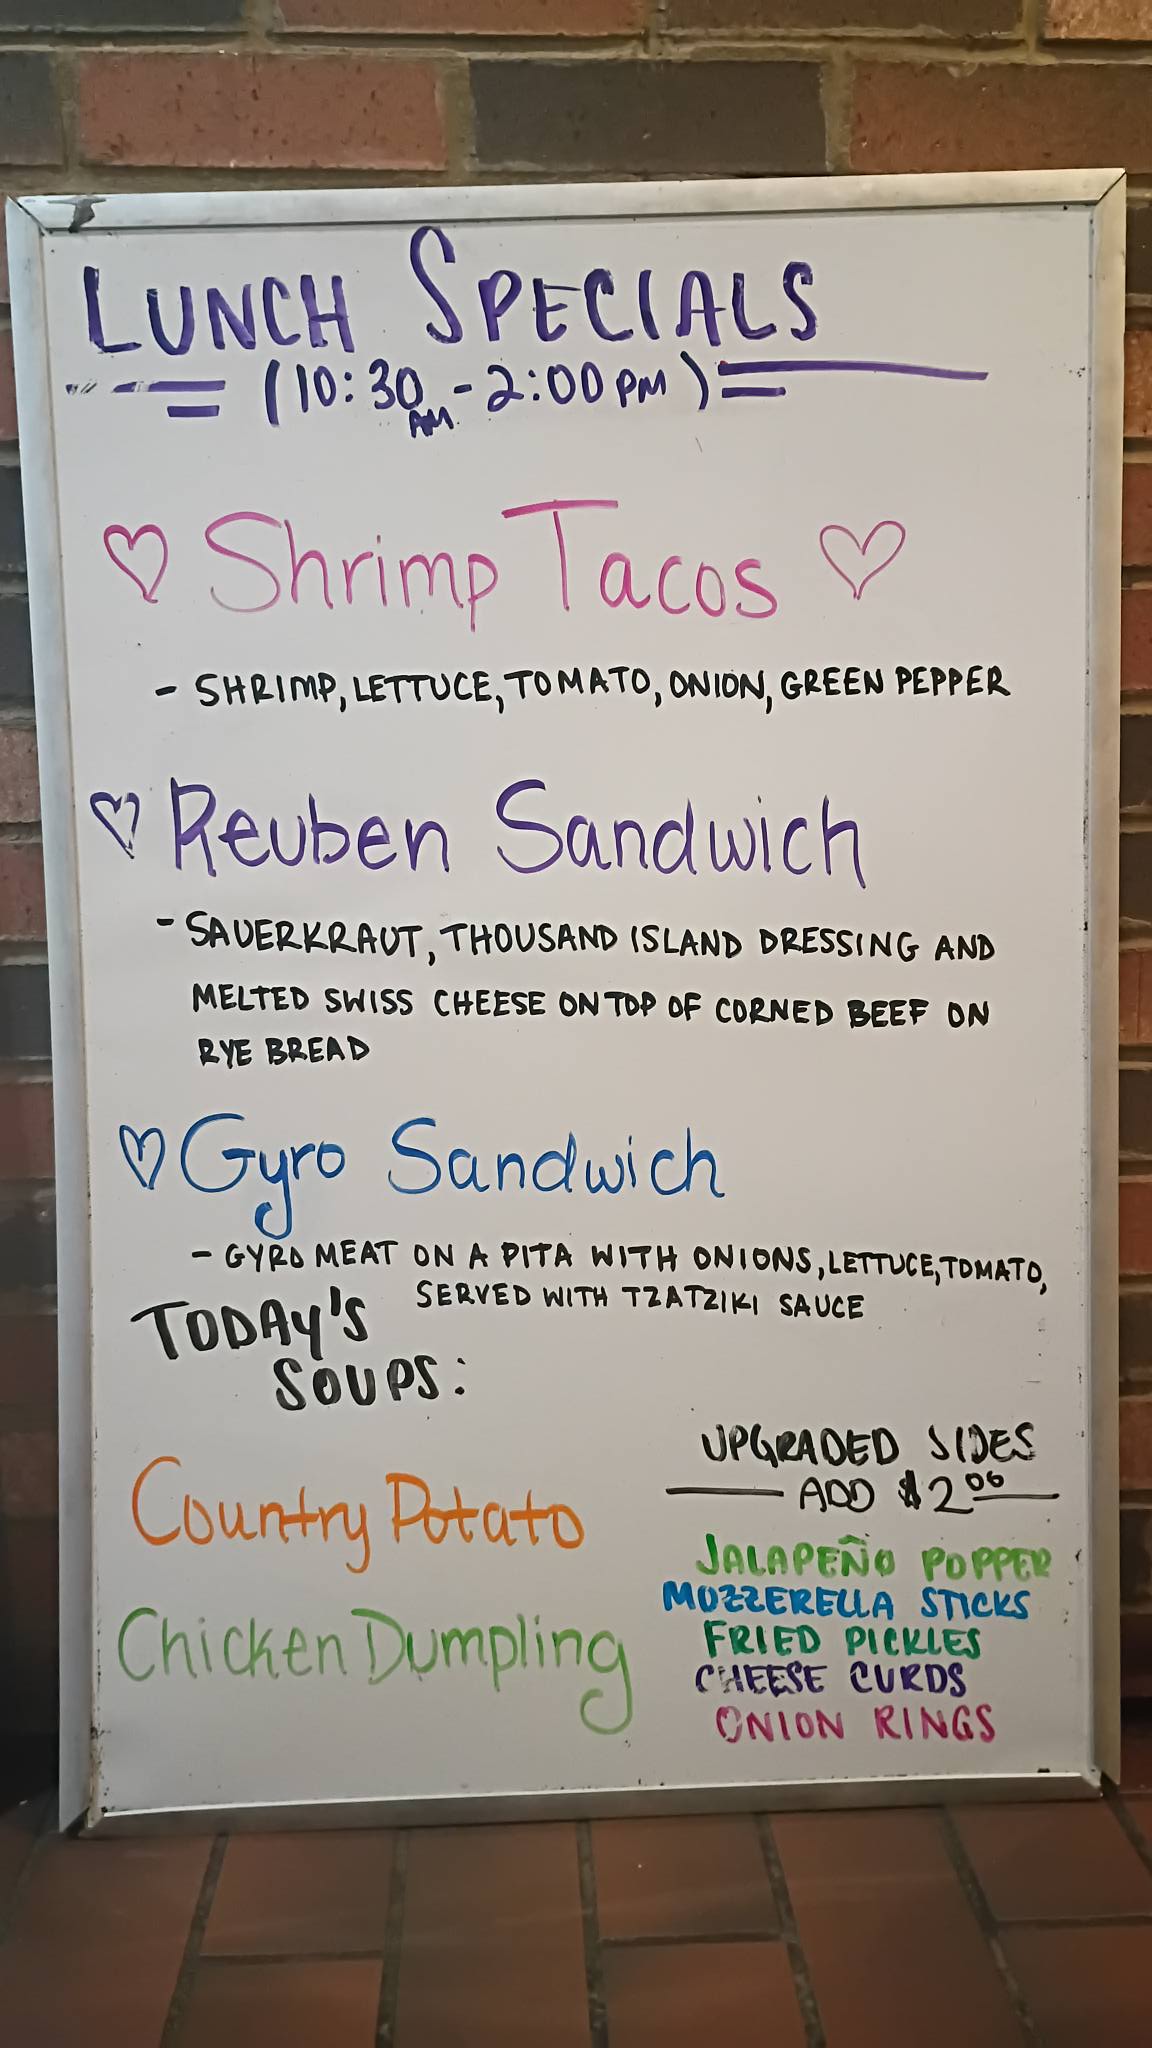 LUNCH SPECIALS
(10:30 AM - 2:00 PM)
Shrimp Tacos
- SHRIMP, LETTUCE, TOMATO, ONION, GREEN PEPPER
Reuben Sandwich
- SAUERKRAUT, THOUSAND ISLAND DRESSING AND
MELTED SWISS CHEESE ON TOP OF CORNED BEEF ON
RYE BREAD
Gyro Sandwich
- GYRO MEAT ON A PITA WITH ONIONS, LETTUCE, TOMATO,
SERVED WITH TZATZIKI SAUCE
TODAY'S
SOUPS:
Country Potato
Chicken Dumpling
UPGRADED SIDES
ADD $2.00
JALAPEÑO POPPER
MOZZERELLA STICKS
FRIED PICKLES
CHEESE CURDS
ONION RINGS